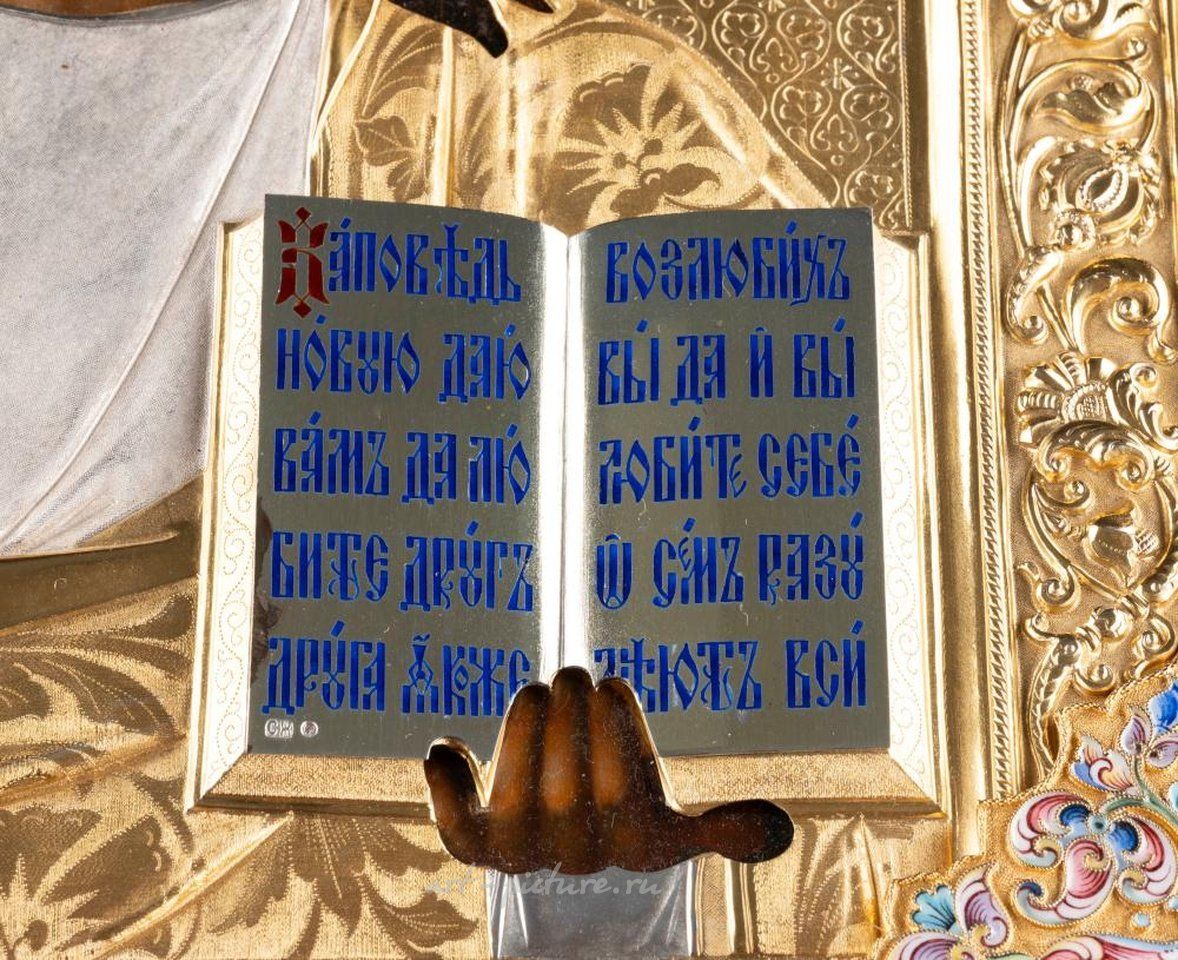 За́повѣдь
но́вꙋю даю́
ва́мъ да лю́
бите дрꙋ́гъ
дрꙋ́га ꙗ҆́коже
возлюби́хъ
вы́ да и҆ вы́
люби́те себе́
ѿ се́мъ разꙋ́
мѣютъ вси́
СИ
art-picture.ru